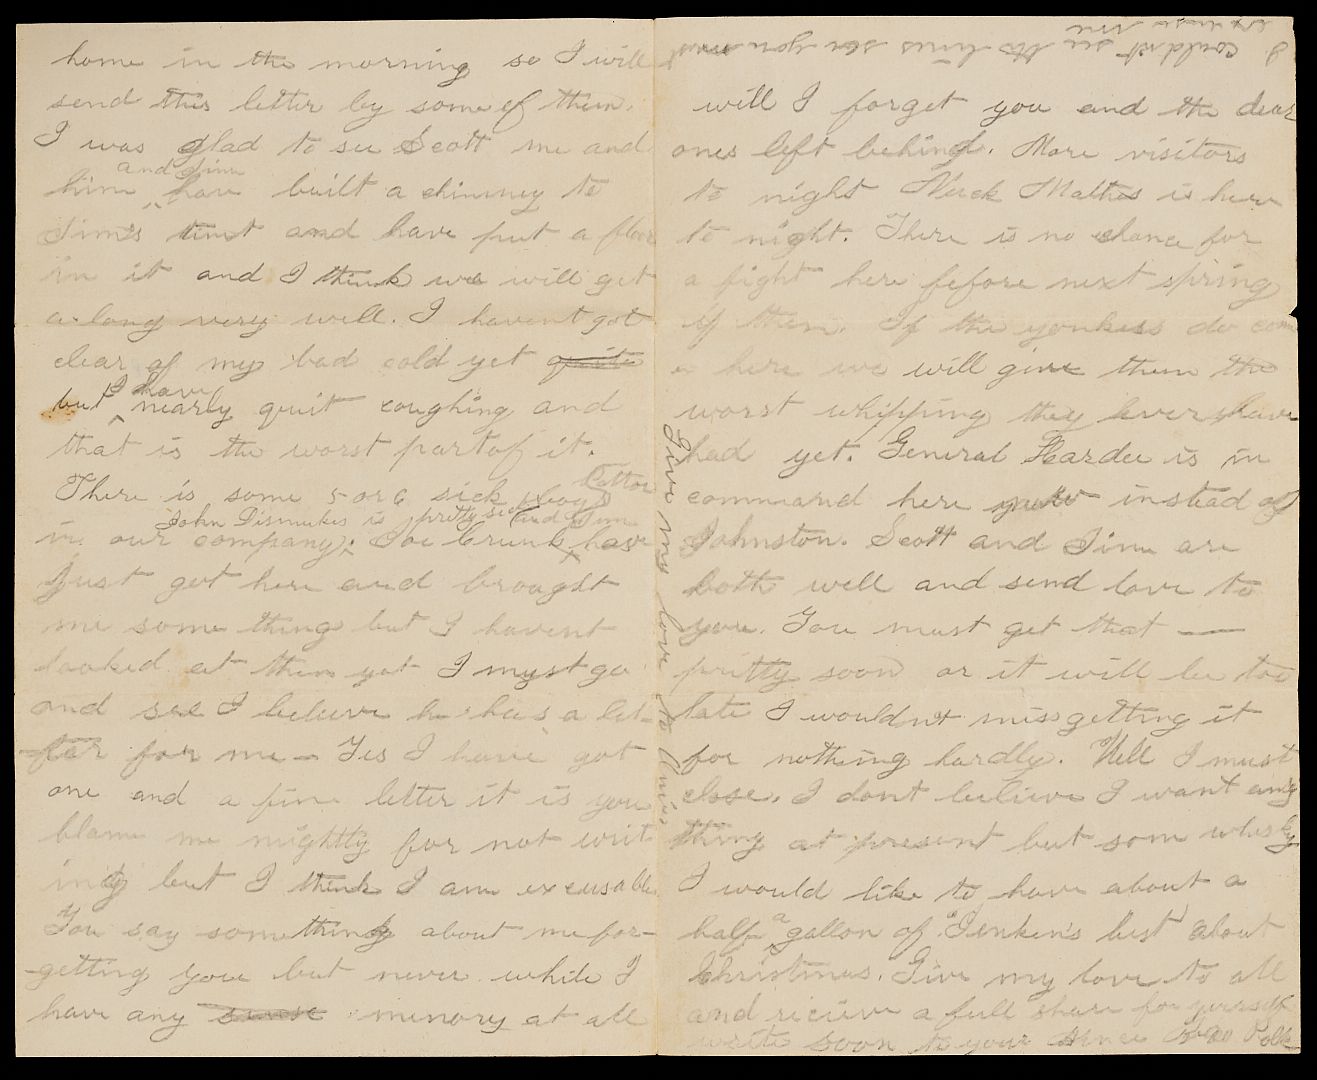 home in the morning so I will
send this letter by some of them.
I was glad to see Scott me and
and Jim
him have built a chimney to
Jim's tent and have put a floor
in it and I think we will get
a-long very well. I havent got
clear of my bad cold yet quite
I have
but nearly quit coughing and
that is the worst part of it.
There is some 5 or 6 sick
John Dismukes is pretty sick and Jim Cotton
in our company. Joe Crunk has
Just got here and brought
me some thing but I havent
looked at them yet I myst go
and see I believe he has a let-
-ter for me — Yes I have got
one and a fine letter it is you
blame me mightly for not writ
ing but I think I am excusable
You say something about me for-
-getting you but never while I
have any sense memory at all
will I forget you and the dear
ones left behind. More visitors
to night Mathes is here
to night. There is no chance for
a fight here fefore next spring
if then. If the yonkees do come
here we will give them the
worst whipping they ever have
had yet. General Hardee is in
command here now instead of
Johnston. Scott and Jim are
both well and send love to
you. You must get that —
pretty soon or it will be too
late I wouldn't miss getting it
for nothing hardly. Well I must
close. I dont believe I want any
thing at present but som whisky
I would like to have about a
a
half gallon of "Jenken's best about
Christmas. Give my love to all
and recieve a full share for yourself
write soon to your Polk
Give my love to
I couldn't see the lines so you must